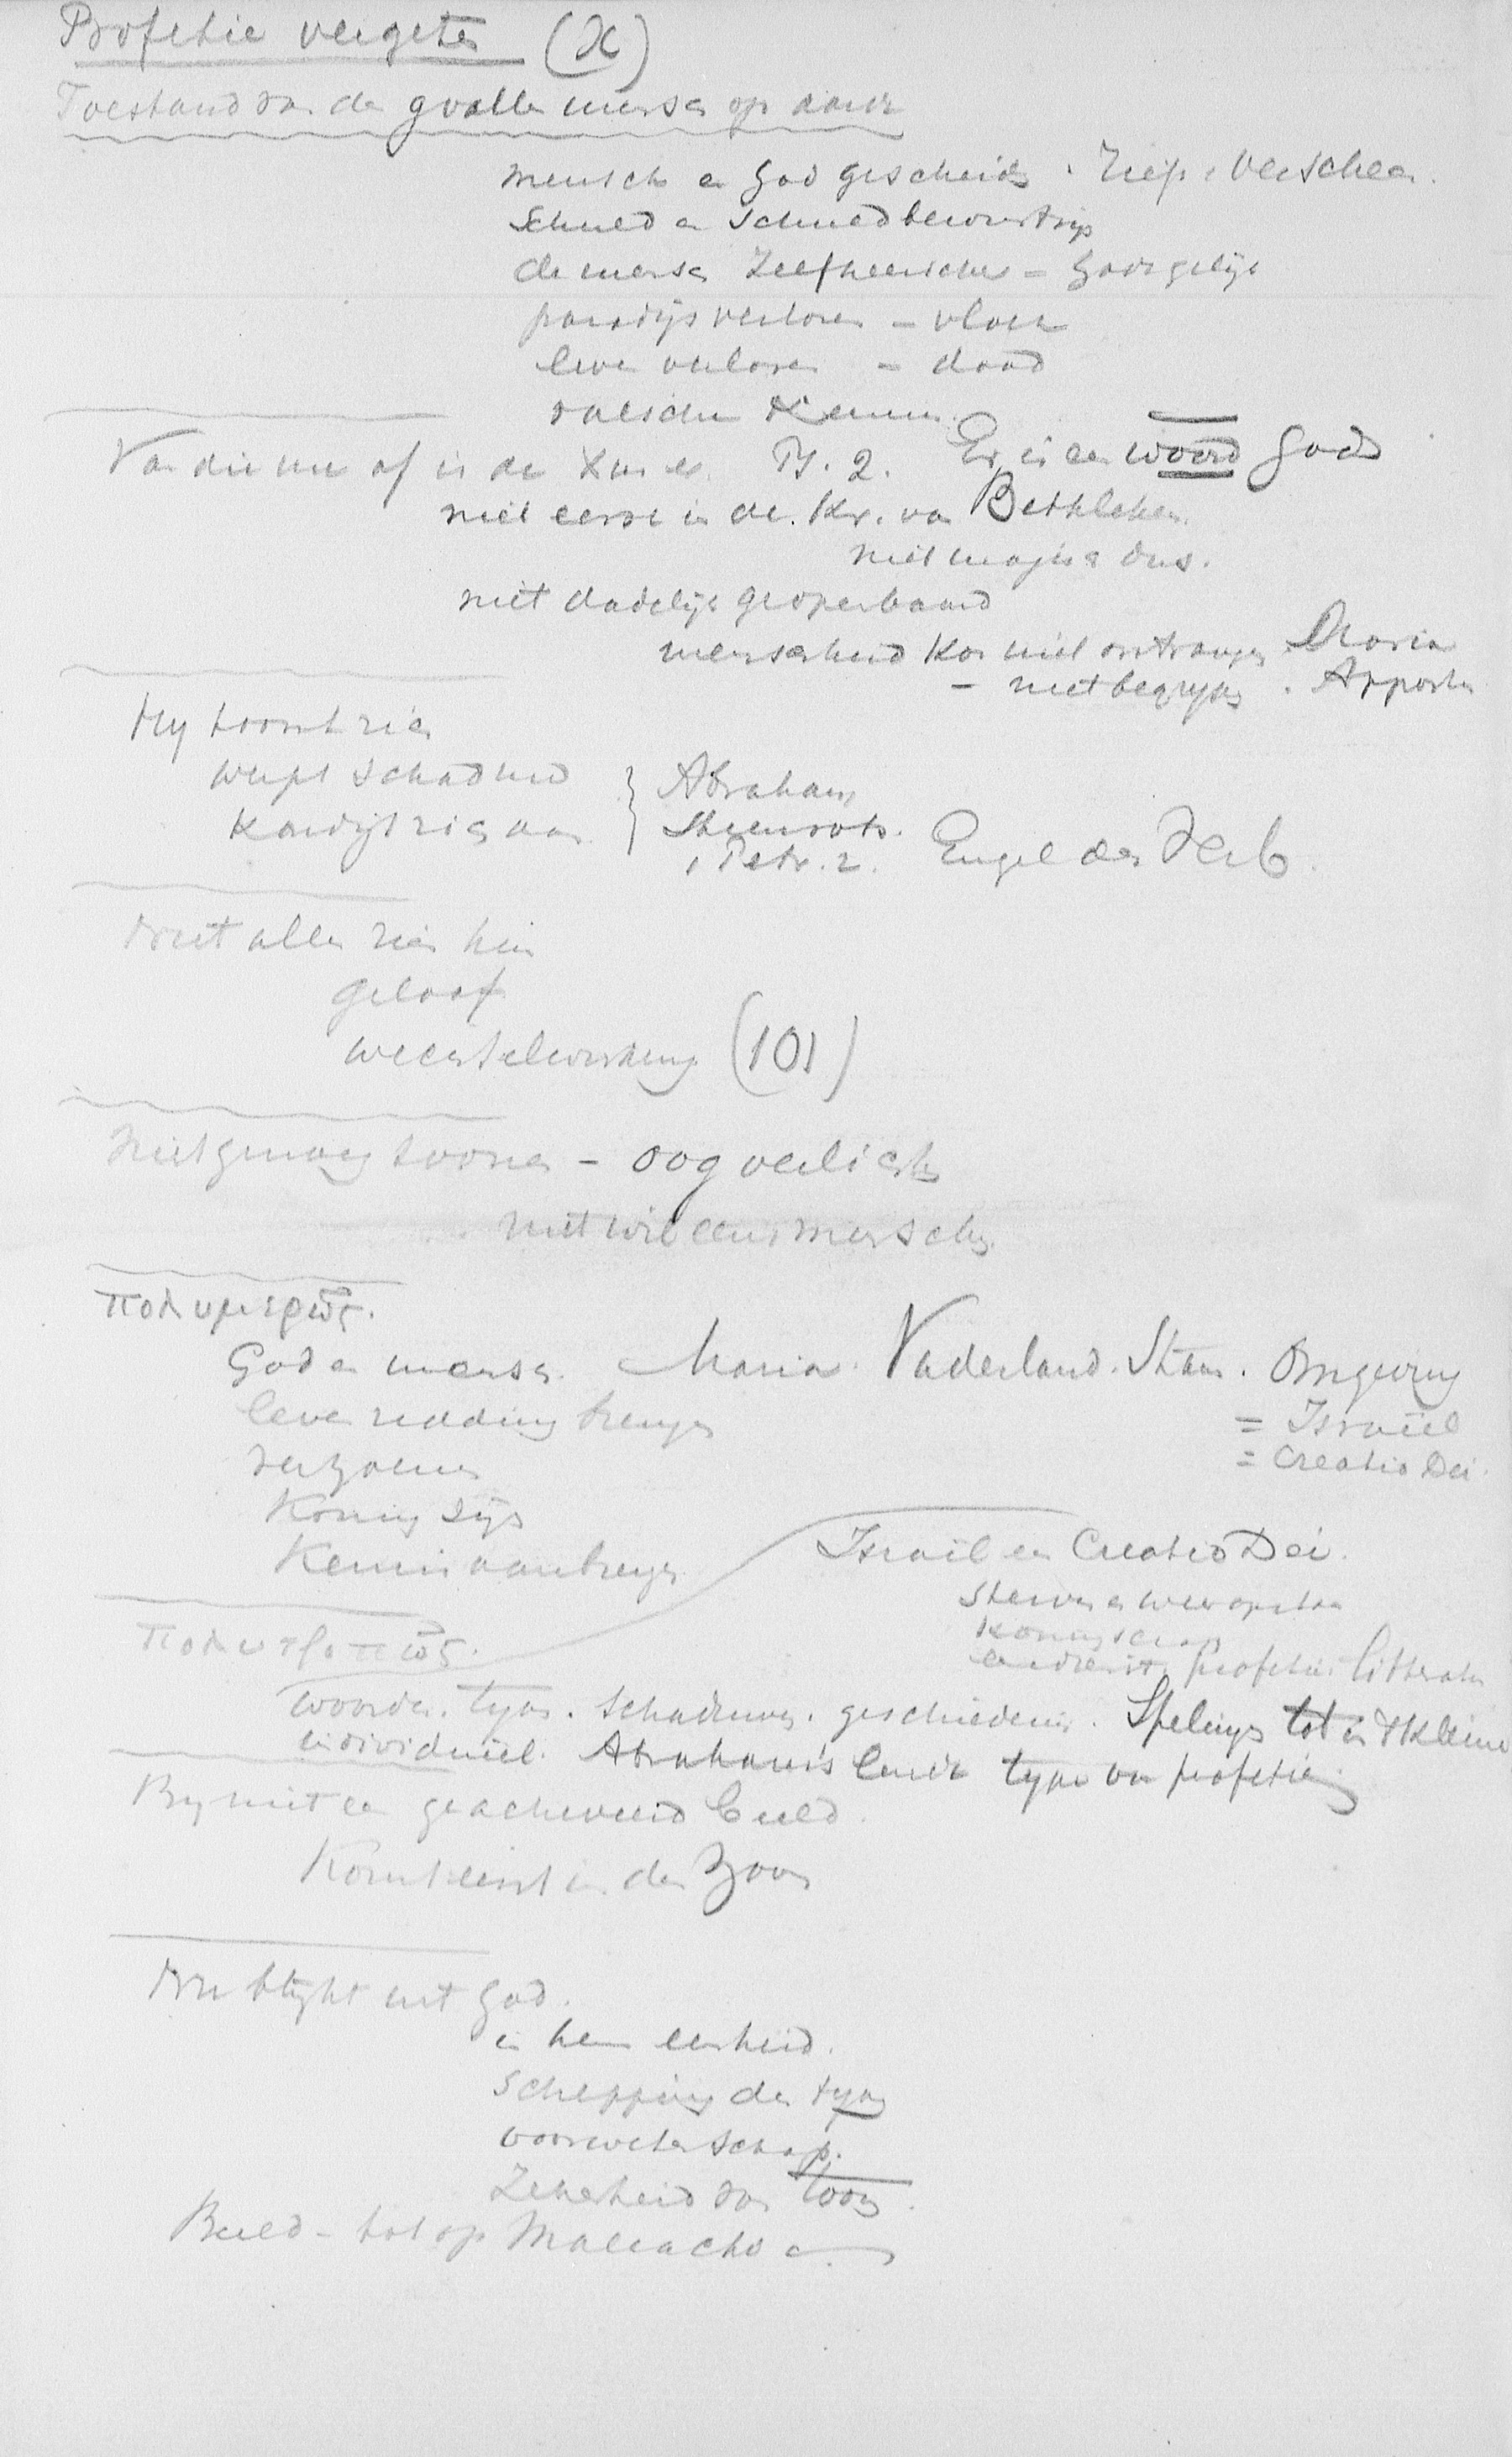 Profetie vergeten (X)
Toestand van de gvalle mensch op aarde
mensch en God gescheiden
Schuld en schuldbewustzijn
de mensch Zelfheerscher = Gode gelijk
paradijs verloren - vloek
leven verloren - dood
valsche Kennis
Van die ure af is de Xus er. Ps. 2. Er is een woord Gods
niet eerst in de Kr. van Bethlehem
niet magisch dus.
niet dadelijk geopenbaard
menschheid kon niet ontvangen. Maria
- niet begrijpen. Apposten
Hij toont zich
werpt schaduw
kondigt zich aan
Abraham
Steenrots.
1 Petr. 2. Engel des Heeb.
Niet allen zien hem
geloof
wisselwerking (101)
Niet genoeg tonen - oog verlicht
niet wil eens menschen
πολυμερῶς.
God en mensch. Maria. Vaderland. Stam. Omgeving
leven redding brengen = Israël
verzoenen = Creatio Dei.
Koning zijn
Kennis aanbrengen
Israël en Creatio Dei.
Sterven en weeropstaan
Koningschap
profetie litteratuur
πολυτροπῶς.
woorden. typen. schaduwen. geschiedenis. Spelingen tot in 't kleine
individueel. Abraham's
By niet een geacheveerd beeld.
Komt eerst in den Zoon
Nu blijkt uit God.
in hem eenheid.
schepping der typen
voorwetenschap.
Zekerheid van toon.
Beeld - tot op Maleachi